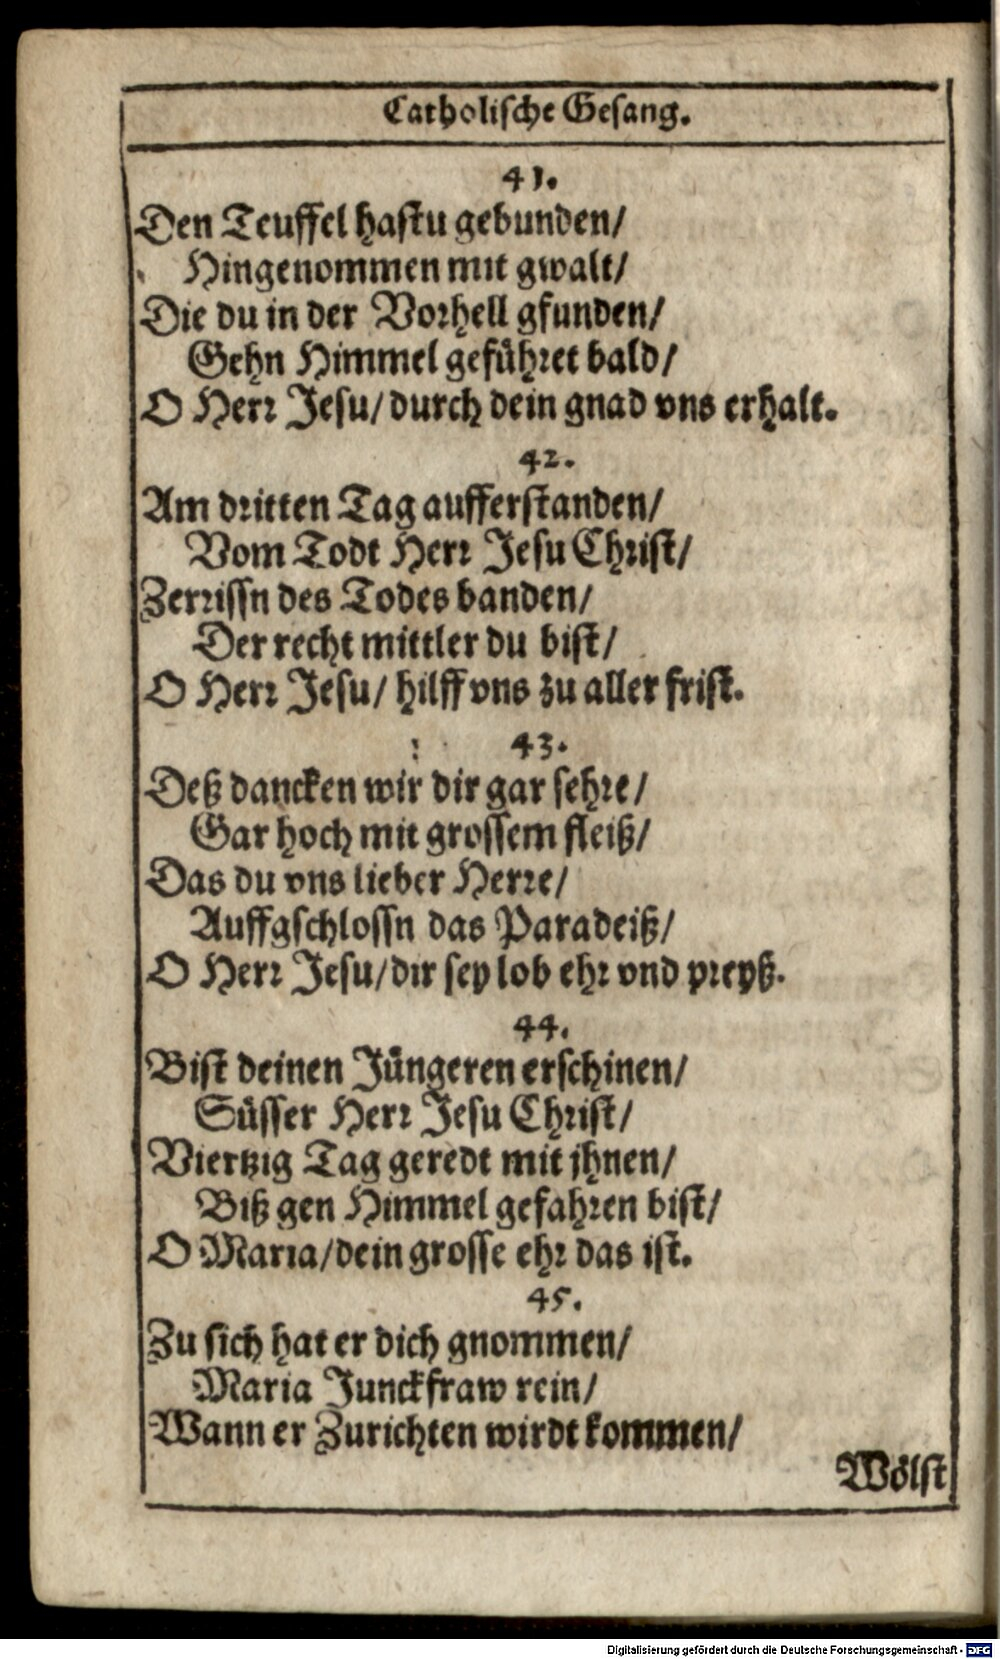 Catholische Gesang.
41.
Den Teuffel hastu gebunden/
Hingenommen mit gwalt/
Die du in der Vorhell gfunden/
Gehn Himmel geführet bald/
O Herr Jesu/ durch dein gnad vns erhalt.
42.
Am dritten Tag aufferstanden/
Vom Todt Herr Jesu Christ/
Zerrissn des Todes banden/
Der recht mittler du bist/
O Herr Jesu/ hilff vns zu aller frist.
43.
Deß dancken wir dir gar sehre/
Gar hoch mit grossem fleiß/
Das du vns lieber Herre/
Auffgschlossn das Paradeiß/
O Herr Jesu/ dir sey lob ehr vnd preyß.
44.
Bist deinen Jüngeren erschinen/
Süsser Herr Jesu Christ/
Viertzig Tag geredt mit jhnen/
Biß gen Himmel gefahren bist/
O Maria/ dein grosse ehr das ist.
45.
Zu sich hat er dich gnommen/
Maria Junckfraw rein/
Wann er Zurichten wirdt kommen/
Wölst
Digitalisierung gefördert durch die Deutsche Forschungsgemeinschaft - DFG